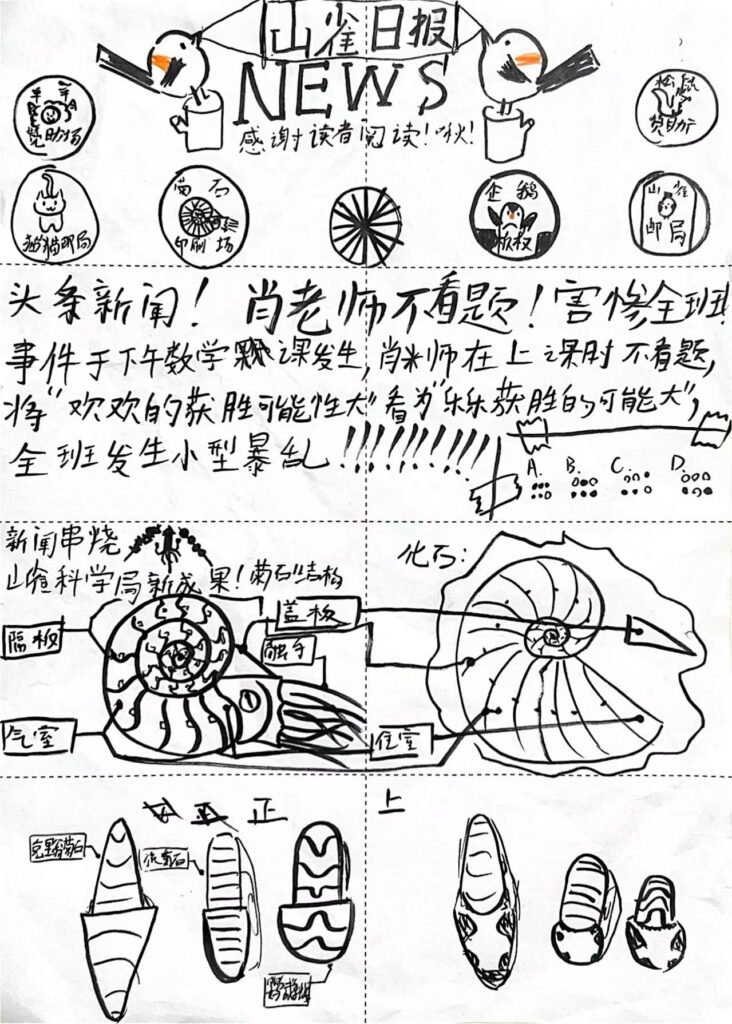 山雀日报
NEWS
感谢读者阅读!啾!
松鼠
猫猫邮局
菊石
印刷场
企鹅
山雀
邮局
头条新闻!肖老师不看题!害惨全班!
事件于下午数学课发生,肖老师在上课时不看题,
将“欢欢的获胜可能性大”看为“乐乐获胜的可能大”,
全班发生小型暴乱!!!!!!!!!!
A. B. C. D.
新闻串烧
山雀科学局新成果!菊石结构
化石:
隔板
盖板
触手
气室
住室
正
上